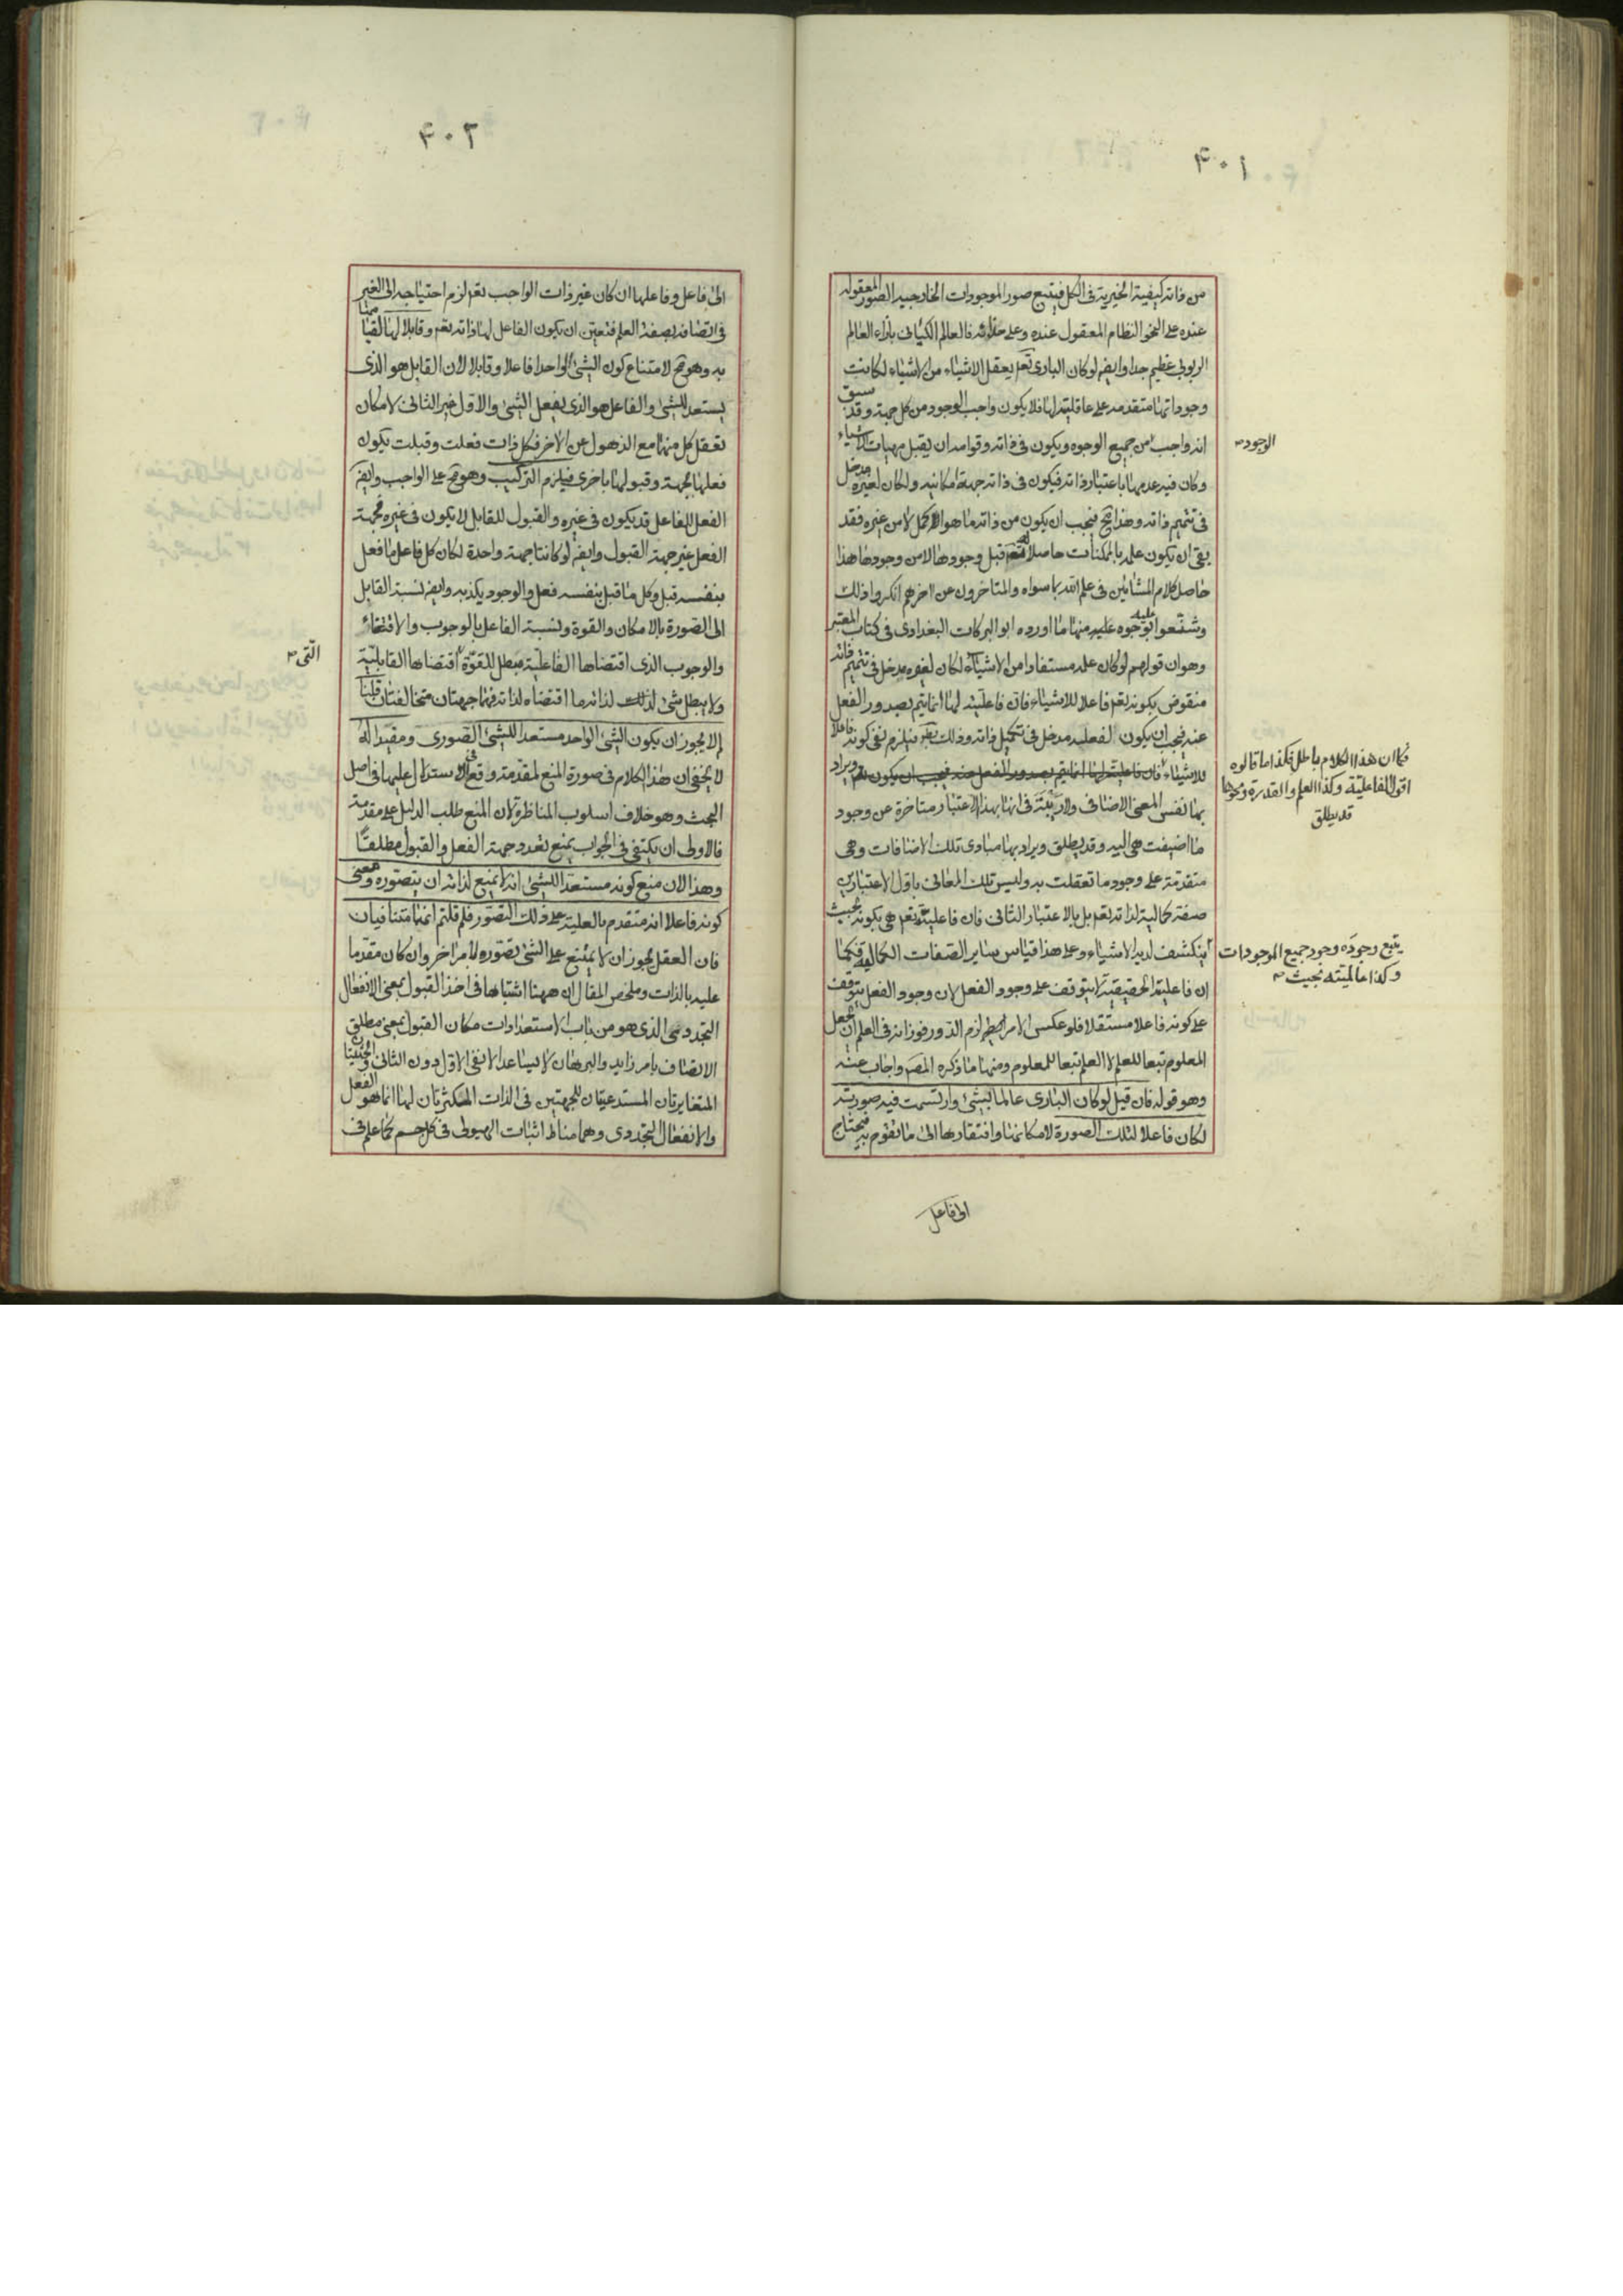 ٤٠١
من ذاته كيفية الخيرية فى الكل فيتبع صور الموجودات الخارجية الصور المعقوله
عنده على النحو النظام المعقول عنده وعلى حذائه فالعالم الكيانى بازاء العالم
الربوبى عظيم جدا وايضا لوكان البارى تعم يعقل الاشياء من الاشياء لكانت
وجوداتها متقدمه على عاقليته لها فلا يكون واجب الوجود من كل جهة وقد سبق
انه واجب من جميع الوجوه ويكون فى ذاته وقوامه ان يقبل مهيات الاشياء
الوجود
وكان فيه عدمها باعتبار ذاته فيكون فى ذاته جهة امكانيه ولكان لغيره مدخل
فى تتميم ذاته وهذا مح فيجب ان يكون من ذاته ما هو الاكمل لا من غيره فقد
بقى ان يكون علمه بالممكنات حاصلا له تعم قبل وجودها لا من وجودها هذا
حاصل كلام المشائين فى علم الله بما سواه والمتاخرون عن اخرهم انكروا ذلك
وشنعوا عليه بوجوه عليه منها ما اورده ابو البركات البغدادى فى كتاب المعتبر
وهو ان قولهم لوكان علمه مستفادا من الاشياء لكان لغيره مدخل فى تتميم ذاته
منقوض بكونه تعم فاعلا للاشياء فان فاعليته لها انما يتم بصدور الفعل
عنه فيجب ان يكون لفعله مدخل فى تكميل ذاته وذلك بط فيلزم نفى كونه فاعلا
للاشياء فان فاعليته لها انما يتم بصدور الفعل عنه فيجب ان يكون لفع ويراد
فكما ان هذا الكلام باطل فكذا ما قالوه
اقول الفاعلية وكذا العلم والقدرة ونحوها
قد يطلق
بها نفس المعنى الاضافى ولا ريبة فى انها بهذا الاعتبار متاخرة عن وجود
ما اضيفت هى اليه وقد يطلق ويراد بها مبادى تلك الاضافات وهى
متقدمة على وجود ما تعقلت به وليس تلك المعانى باول الاعتبارين
صفة كمالية لذاته تعم بل بالاعتبار الثانى فان فاعليته تعم هى بكونه بحيث
ينكشف لديه الاشياء وعلى هذا قياس ساير الصفات الكماليه فكما
يتبع وجوده وجود جميع الموجودات
وكذا عالميته بحيث
ان فاعليته الحقيقية لا يتوقف على وجود الفعل لان وجود الفعل يتوقف
على كونه فاعلا مستقلا فلو عكس الامر لزم الدور فوزانه فى العلم ان يجعل
المعلوم تبعا للعلم لا العلم تبعا للمعلوم ومنها ما ذكره المصم واجاب عنه
وهو قوله فان قيل لوكان البارى عالما بالشئ وارتسمت فيه صورته
لكان فاعلا لتلك الصورة لامكانها وافتقارها الى ما تقوم به فيحتاج
الى فاعل
٤٠٢
الى فاعل وفاعلها ان كان غير ذات الواجب تعم لزم احتياجه الى الغير
فى اتصافه بصفة العلم فتعين ان يكون الفاعل لها ذاته تعم وقابلا لها لقيامها
به وهو مح لامتناع كون الشئ الواحد فاعلا وقابلا لان القابل هو الذى
يستعد للشئ والفاعل هو الذى يفعل الشئ والاول غير الثانى لامكان
تعقل كل منهما مع الذهول عن الاخر فكل ذات فعلت وقبلت يكون
فعلها بجهة وقبولها باخرى فيلزم التركيب وهو مح على الواجب وايضا
الفعل للفاعل قد يكون فى غيره والقبول للقابل لا يكون فى غيره فجهة
الفعل غير جهة القبول وايضا لوكانتا جهة واحدة لكان كل فاعل ما فعل
بنفسه قبل وكل ما قبل بنفسه فعل والوجود يكذبه وايضا نسبة القابل
الى الصورة بالامكان والقوة ونسبة الفاعل بالوجوب والاقتضاء
والوجوب الذى اقتضاها الفاعلية مبطل للقوة اقتضاها القابلية
التى
ولا يبطل شئ لذاته ما اقتضاه لذاته فهما جهتان متخالفتان قلنا
لم لا يجوز ان يكون الشئ الواحد مستعدا للشئ الصورى ومفيدا له
لا يخفى ان هذا الكلام فى صورة المنع لمقدمة وقع الاستدلال عليها فى اصل
البحث وهو خلاف اسلوب المناظرة لان المنع طلب الدليل على مقدمة
فالاولى ان يكتفى فى الجواب بمنع تعدد جهة الفعل والقبول مطلقا
وهذا لان منع كونه مستعدا للشئ انه لا يمنع لذاته ان يتصوره ومعنى
كونه فاعلا انه متقدم بالعلية على ذلك التصور فلم قلتم انهما متنافيان
فان العقل يجوز ان لا يمتنع على الشئ تصوره لامر اخر وان كان مقدما
عليه بالذات وملخص المقال ان ههنا اشتباها فى اخذ القبول بمعنى الانفعال
التجددى الذى هو من باب الاستعدادات مكان القبول بمعنى مطلق
الاتصاف بامر زايد والبرهان لا يساعد الا نفى الاول دون الثانى
المتغايرتان المستدعيتان للجهتين فى الذات المتكثرتان لها انما هو الفعل
والانفعال التجددى وهما مناط اثبات الهيولى فى كل جسم كما علم فى